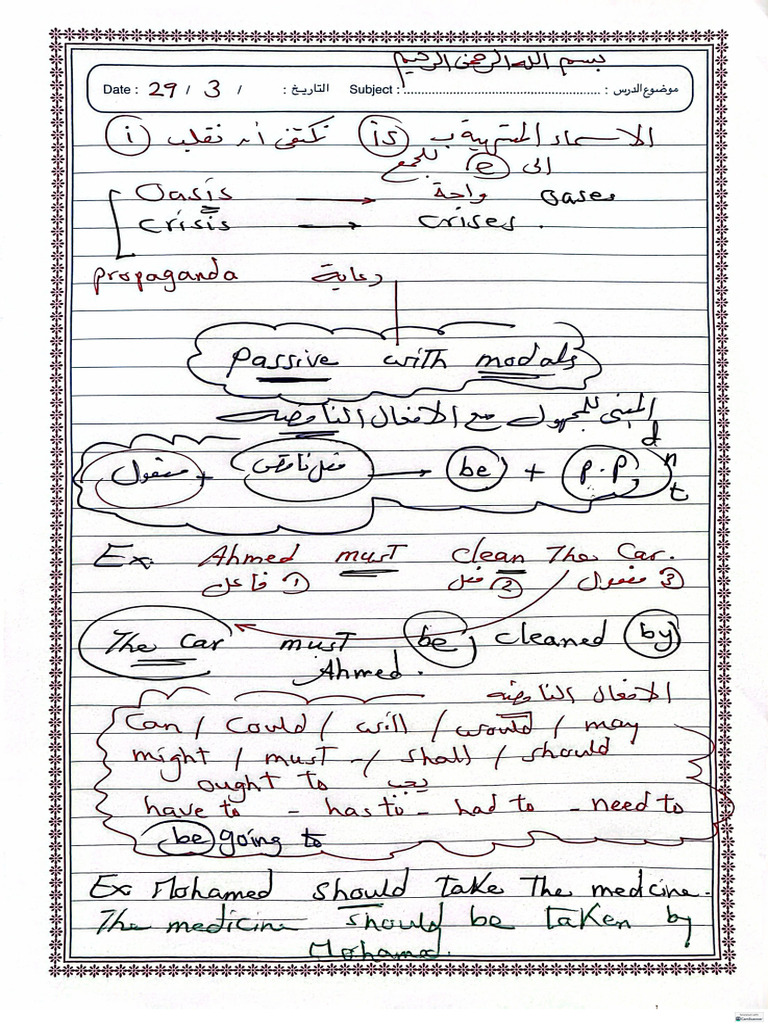 بسم الله الرحمن الرحيم
Date : 29 / 3 / التاريخ : Subject : موضوع الدرس :
الاسماء المنتهية ب (is) نكتفي أن نقلب (i)
الى (e) للجمع
Oasis → واحة oases
Crisis → crises .
propaganda دعاية
Passive with modals
المبني للمجهول مع الافعال الناقصه
مفعول + فعل ناقص → be + P.P d n t
Ex. Ahmed must clean The Car.
فاعل ① فعل ② مفعول ③
The Car must be cleaned by
Ahmed.
الافعال الناقصه
Can / Could / will / would / may
might / must / shall / should
ought to يجب
have to - has to - had to - need to
be going to
Ex Mohamed should take The medicine.
The medicine should be taken by
Mohamed.
CamScanner